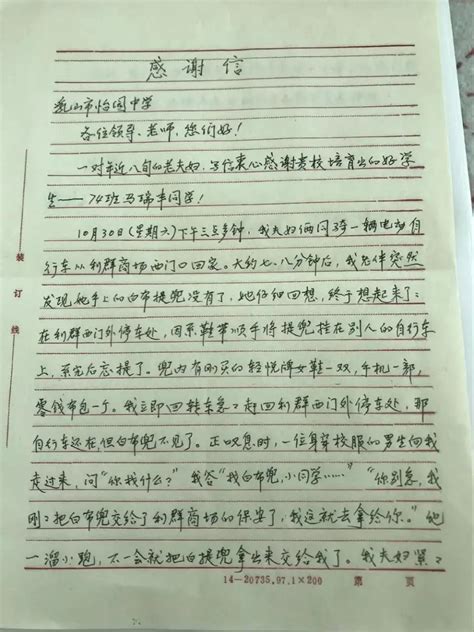 感谢信
乳山市怡园中学
各位领导、老师，您们好！
一对年近八旬的老夫妇，写信衷心感谢贵校培育出的好学
生——74班马瑞丰同学！
10月30日（星期六）下午三点多钟，我夫妇俩同骑一辆电动自
行车从利群商场西门口回家。大约七、八分钟后，我老伴突然
发现她手上的白布提兜没有了，她仔细回想，终于想起来了：
在利群西门外停车处，因系鞋带顺手将提兜挂在别人的自行车
上，系完后忘提了。兜内有刚买的轻悦牌女鞋一双，手机一部，
零钱布包一个。我立即回转车急々赶回利群西门外停车处，那
自行车还在，但白布兜不见了。正叹息时，一位身穿校服的男生向我
走过来，问“你找什么？”我答“找白布兜，小同学……”“你别急，我
刚々把白布兜交给了利群商场的保安了，我这就去拿给你。”他
一溜小跑，不一会就把白提兜拿出来交给我了。我夫妇紧々
装订线
14—20735.97.1×200 第 页